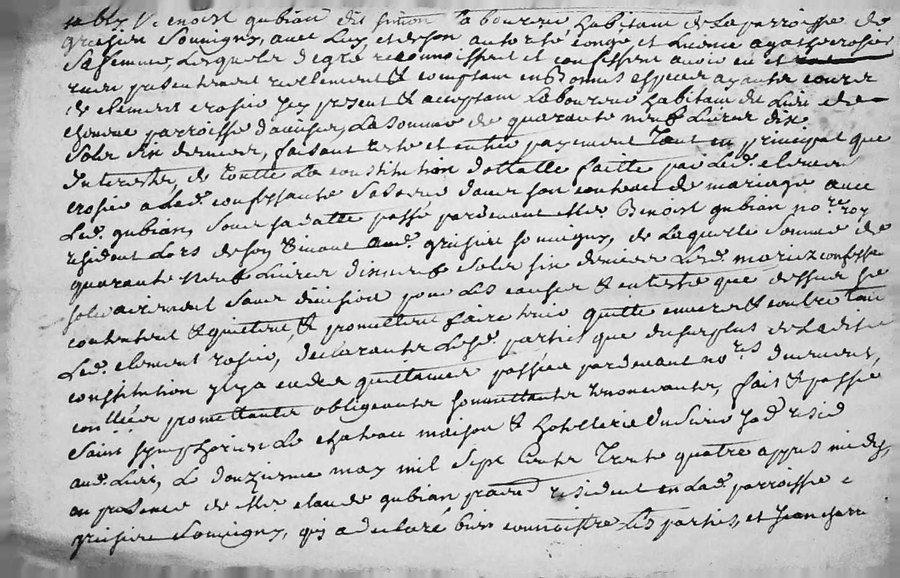 Sr. Benoist gubian dit simon laboureur habitant de La parroisse de
grezieu Souvigny, avec Luy, et de son authorité congé, et Licence agathe crosier
Sa femme, Lesquels de gré reconnoissent et confessent avoir eu et
receu presentement reellement & comptant en Bonnes especes ayantes cours
de clement crosier Icy present & acceptant Laboureur habitant du Lieu de
parroisse d'aveises, La somme de quarante neuf Livres dix
Sols six deniers, faisant reste et entier payement Tant en principal que
Interests, de toutte La constitution dottalle faitte par Led. clement
crosier a Lad. confessante Sa dans son contract de mariage avec
Led. gubian, Sous sa datte passé pardevant Me. Benoist gubian no.re roy
resident Lors de son vivant aud. grezieu souvigny, de Laquelle Somme de
quarante neuf Livres Sols six deniers Lesd. mariez confessent
solidairement Sans division pour Les causes & interests que dessus se
contentent & quittent, & promettent faire tenir quitte envers & contre tous
Led. clement crosier, declarantes Lesd. parties que du surplus de Ladite
constitution il y a eu des quittances passées pardevant no.res
promettantes obligeantes soumettantes renonceantes, fait & passé
Saint Symphorien Le chateau maison & hotellerie du Sieur
aud. Lieu, Le douzieme may mil Sept Cents Trente quatre appres midy,
en presence de Me. claude gubian resident en Lad. parroisse de
grezieu Souvigny, qui a declaré bien connoistre Les parties, et Jean